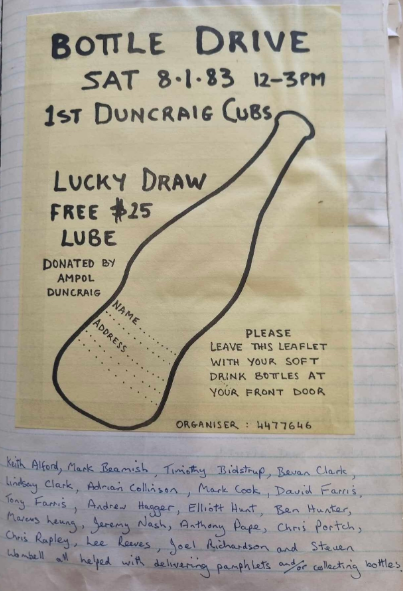 BOTTLE DRIVE
SAT 8.1.83 12-3PM
1ST DUNCRAIG CUBS
LUCKY DRAW
FREE $25
LUBE
DONATED BY
AMPOL
DUNCRAIG
NAME
ADDRESS
PLEASE
LEAVE THIS LEAFLET
WITH YOUR SOFT
DRINK BOTTLES AT
YOUR FRONT DOOR
ORGANISER : 4477646
Keith Alford, Mark Beamish, Timothy Bidstrup, Bevan Clark,
Lindsay Clark, Adrian Collinson, Mark Cook, David Farris,
Tony Farris, Andrew Hagger, Elliott Hunt, Ben Hunter,
Marcus Leung, Jeremy Nash, Anthony Pape, Chris Portch,
Chris Rapley, Lee Reeves, Joel Richardson and Steven
Wombell all helped with delivering pamphlets and/or collecting bottles